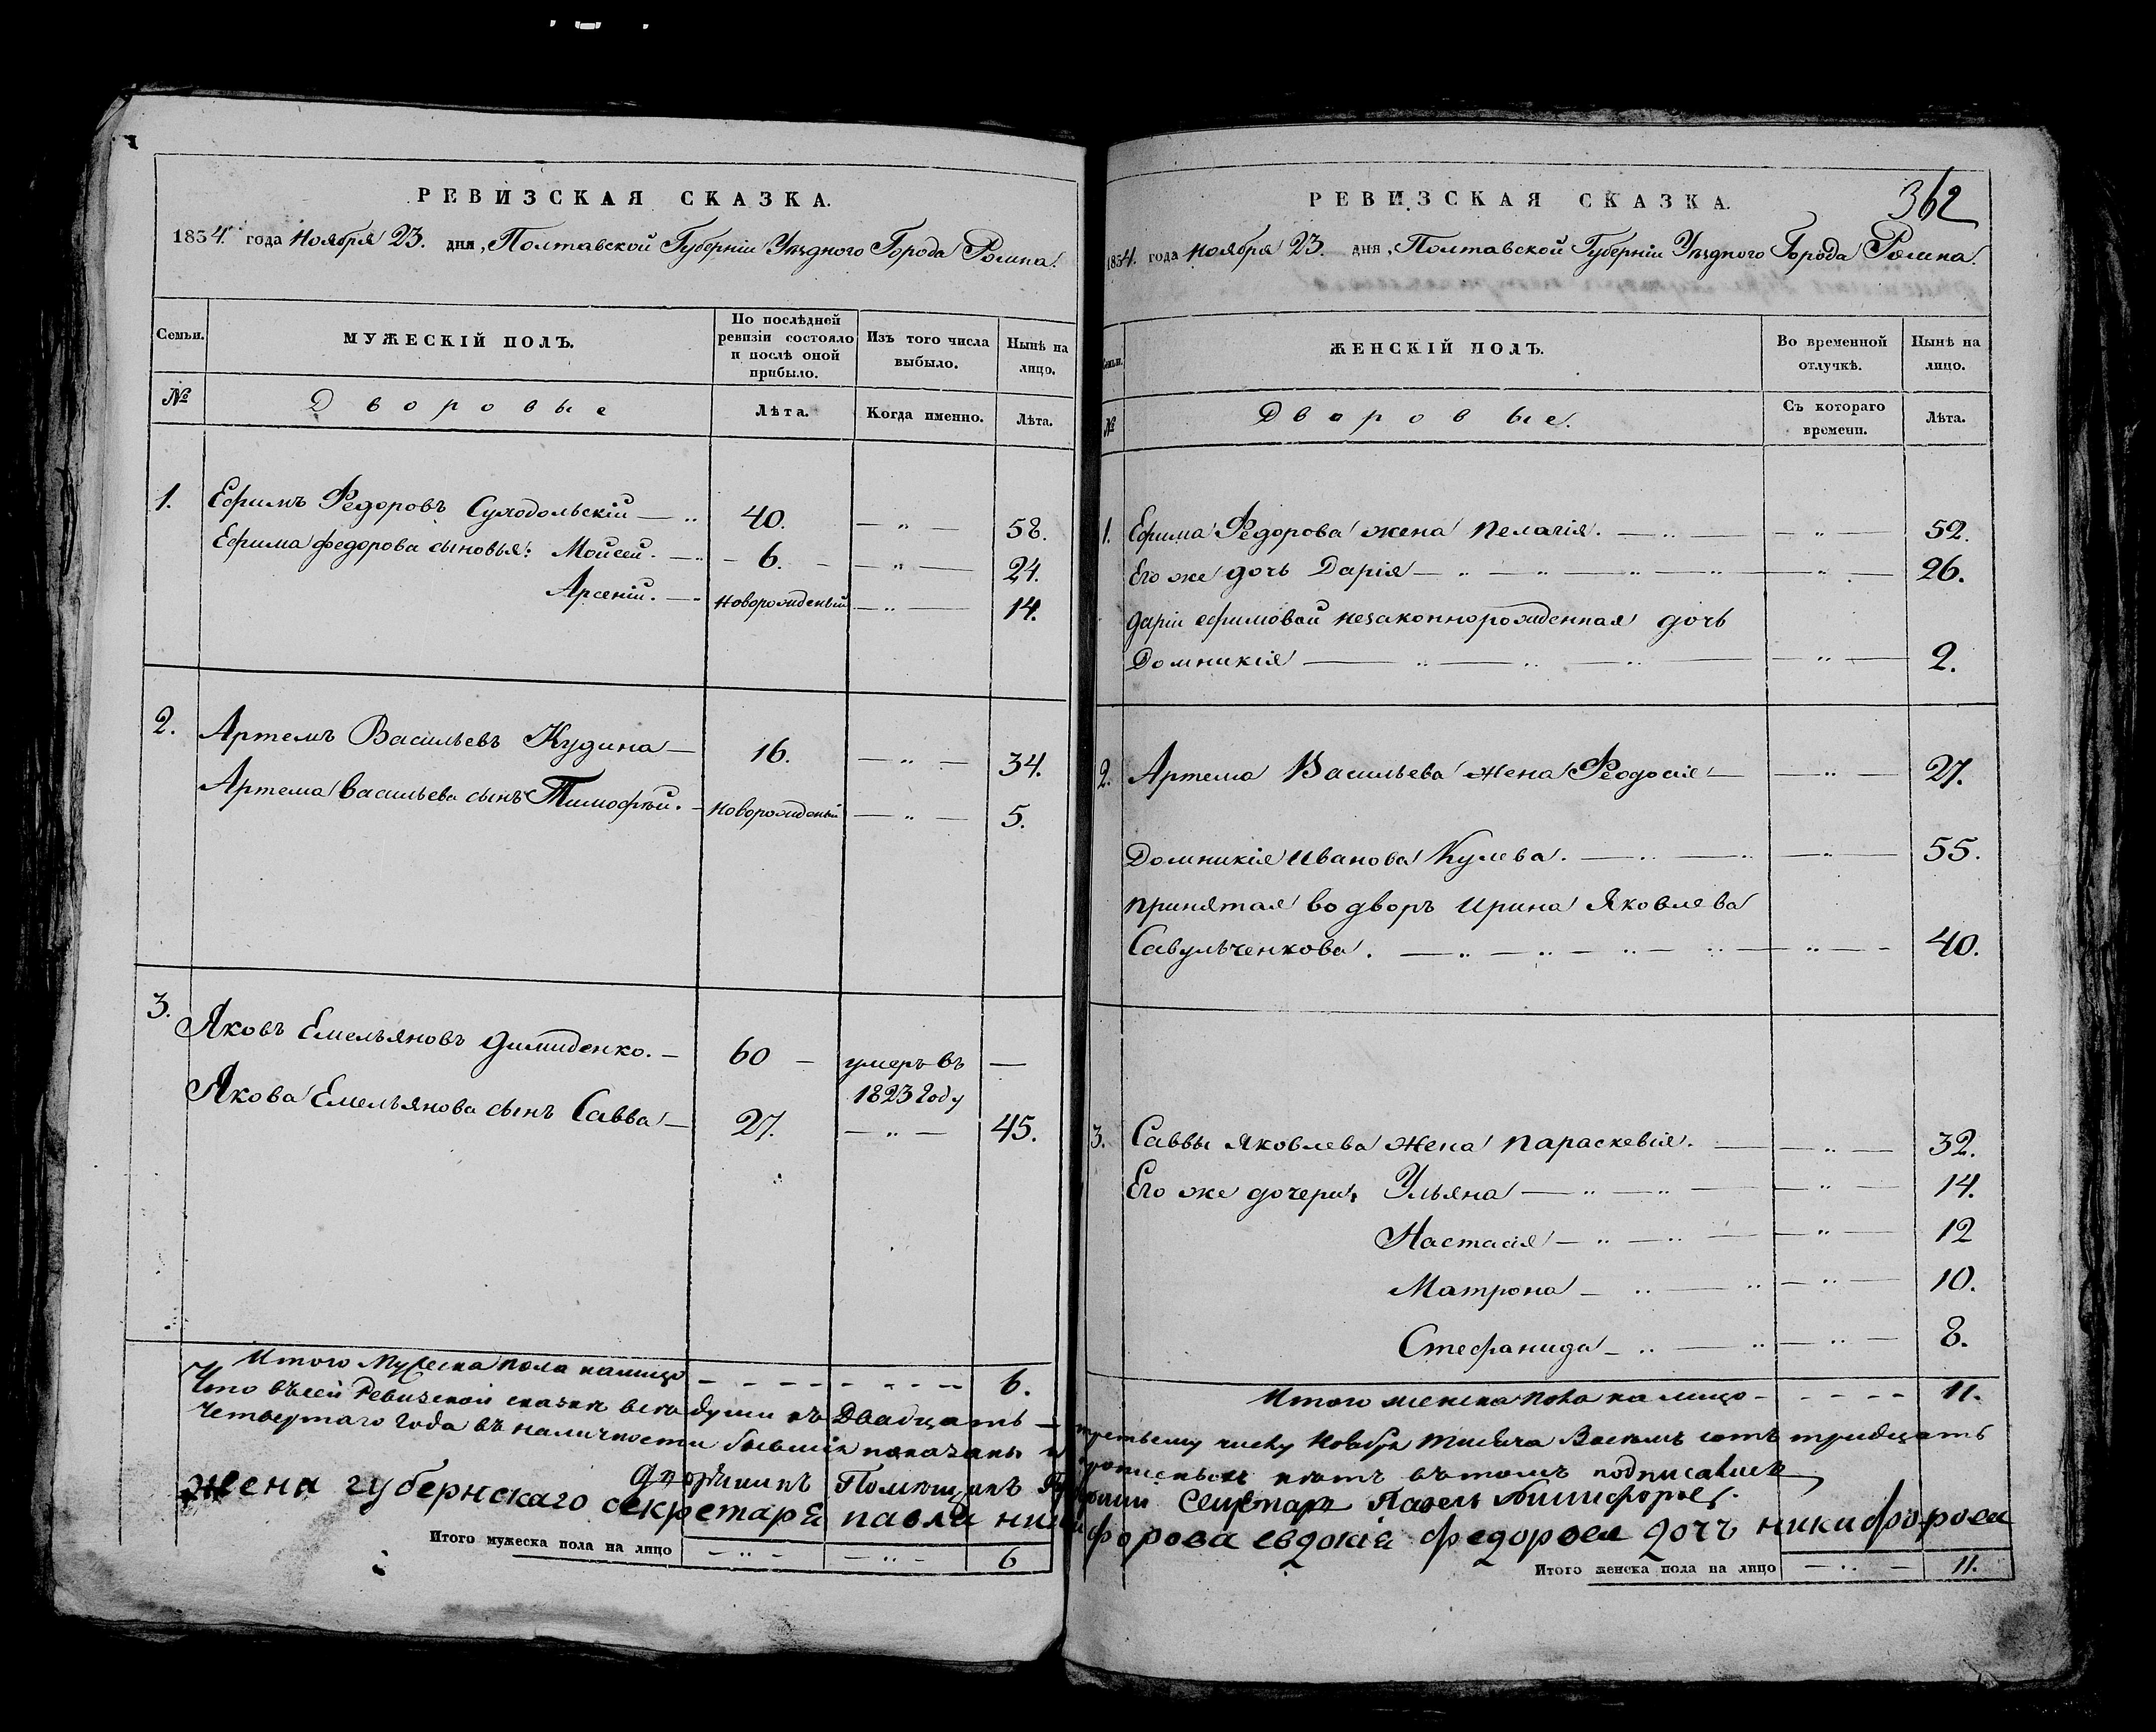 РЕВИЗСКАЯ СКАЗКА.
1834. года Ноября 23. дня, Полтавской Губерніи Уѣзднаго Города Ромна.
Семьи.
МУЖЕСКІЙ ПОЛЪ.
По послѣдней ревизіи состояло и послѣ оной прибыло.
Изъ того числа выбыло.
Нынѣ на лицо.
№
Дворовые
Лѣта.
Когда именно.
Лѣта.
1. Ефимъ Федоровъ Суходольскій — „ 40. — „ — 58.
Ефима Федорова сыновья: Моисей. — 6. — — „ — 24.
Арсеній. — Новорожденый — „ — 14.
2. Артемъ Васильевъ Кудина — 16. — „ — 34.
Артема Васильева сынъ Тимофѣй. — Новорожденый — „ — 5.
3. Яковъ Емельяновъ Димиденко. — 60 — умеръ въ —
1823 году
Якова Емельянова сынъ Савва — 27. — „ — 45.
Итого Мужеска пола налицо — — — — 6.
Что въ сей Ревизской сказкѣ всѣ души къ Двадцать —
четвертаго года въ наличности бывшія показаны и
Дворянинъ Помѣщикъ
жена губернскаго секретаря павла ники
Итого мужеска пола на лицо — „ — — „ — 6
РЕВИЗСКАЯ СКАЗКА.
362
1834. года Ноября 23. дня, Полтавской Губерніи Уѣзднаго Города Ромна.
Семьи.
ЖЕНСКІЙ ПОЛЪ.
Во временной отлучкѣ.
Нынѣ на лицо.
№
Дворовые.
Съ котораго времени.
Лѣта.
1. Ефима Федорова жена Пелагія. — „ — — „ — 52.
Его же дочь Дарія — „ — „ — „ — 26.
Даріи Ефимовой незаконнорожденная дочь
Домникія — „ — „ — „ — 2.
2. Артема Васильева жена Феодосія — — „ — 27.
Домникія Иванова Кулева. — „ — „ — „ — 55.
Принятая во дворъ Ирина Яковлева
Савульченкова. — „ — „ — „ — 40.
3. Саввы Яковлева жена Параскевія. — — „ — 32.
Его же дочери, Ульяна — „ — „ — „ — 14.
Настасія — „ — „ — „ — 12
Матрона — „ — „ — „ — 10.
Стефанида — „ — „ — „ — 8.
Итого женска пола на лицо — - - - - 11.
третьему числу Ноября тысяча Восемъ сотъ тридцать
нѣтъ въ томъ подписался
Секретарь Павелъ Никифоровъ.
форова евдокія федорова дочь никифорова
Итого женска пола на лицо — „ — 11.